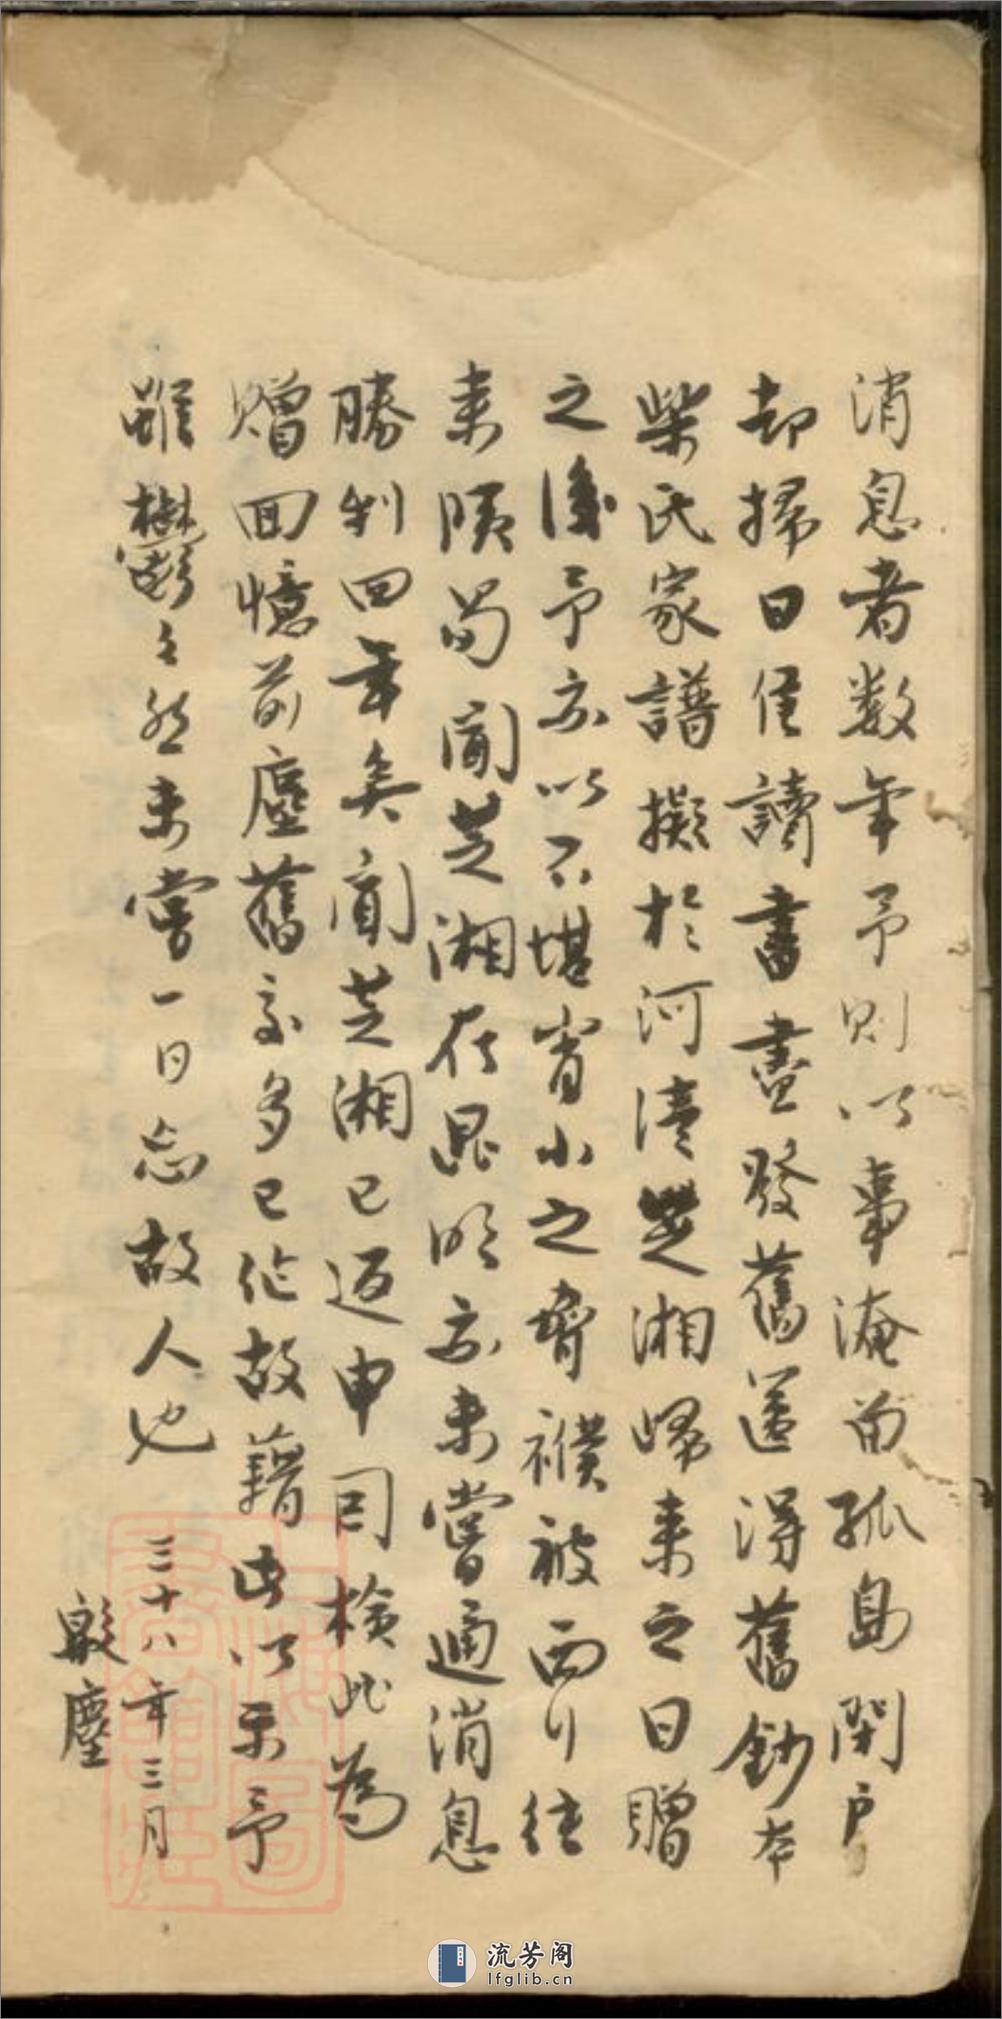 消息者数年予则以事淹留孤島閉户
却掃日惟讀書盡發舊篋得舊鈔本
柴氏家譜擬於河清芝湘歸来之日贈
之後予亦以不堪宵小之脅襆被西行往
来陝蜀聞芝湘在昆明亦未嘗通消息
勝利四年矣聞芝湘已返申因檢此為
贈回憶前塵舊交多已作故藉此以示予
雖鬱々然未嘗一日忘故人也
三十八年三月